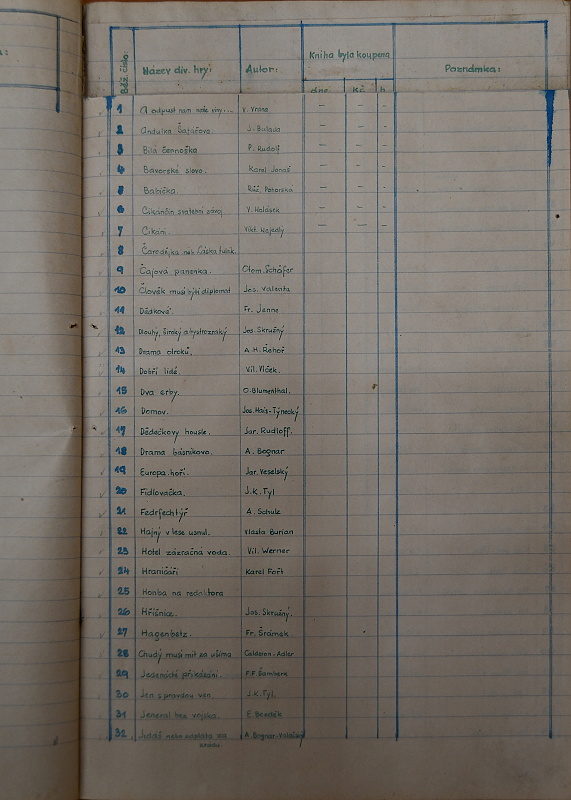 Běž. číslo:
Název div. hry:
Autor:
Kniha byla koupena
dne
Kč
h
Poznámka:
1 A odpusť nám naše viny... V. Vrána – – –
2 Andulka Šafářova J. Balada – – –
3 Bílá černoška P. Rudolf – – –
4 Bavorské pivo. Karel Jonáš – – –
5 Babička. Růž. Pohorská – – –
6 Cikánčin svatební závoj V. Holásek – – –
7 Cikáni. Nejedlý – – –
8 Čarodějka neb Láska
9 Čajová panenka. Olom. Schäfer
10 Člověk musí býti diplomat Jos. Valenta
11 Fr. Janne
12 Dlouhý, široký a bystrozraký Jos. Skružný
13 Drama otroků. A.H. Řehoř
14 Dobří lidé. Vil. Vlček.
15 Dva erby. O. Blumenthal.
16 Domov. Jos. Hais-Týnecký
17 Dědečkovy housle. Jar. Rudloff.
18 Drama básníkovo. A. Bognar
19 Europa hoří. Jar. Veselský
20 Fidlovačka. J.K. Tyl
21 A. Schulz
22 Hajný v lese usnul. Vlasta Burian
23 Hotel zázračná voda. Vil. Werner
24 Hraničáři Karel Fořt
25 Honba na redaktora
26 Hříšnice. Jos. Skružný.
27 Hagenbek. Fr. Šrámek
28 Chudý musí mít za ušima
29 Jedenácté přikázání. F.F. Šamberk
30 Jen s pravdou ven J.K. Tyl.
31 Jenerál bez vojska.
32. Jidáš nebo odplata za A. Bognar-
zradu.